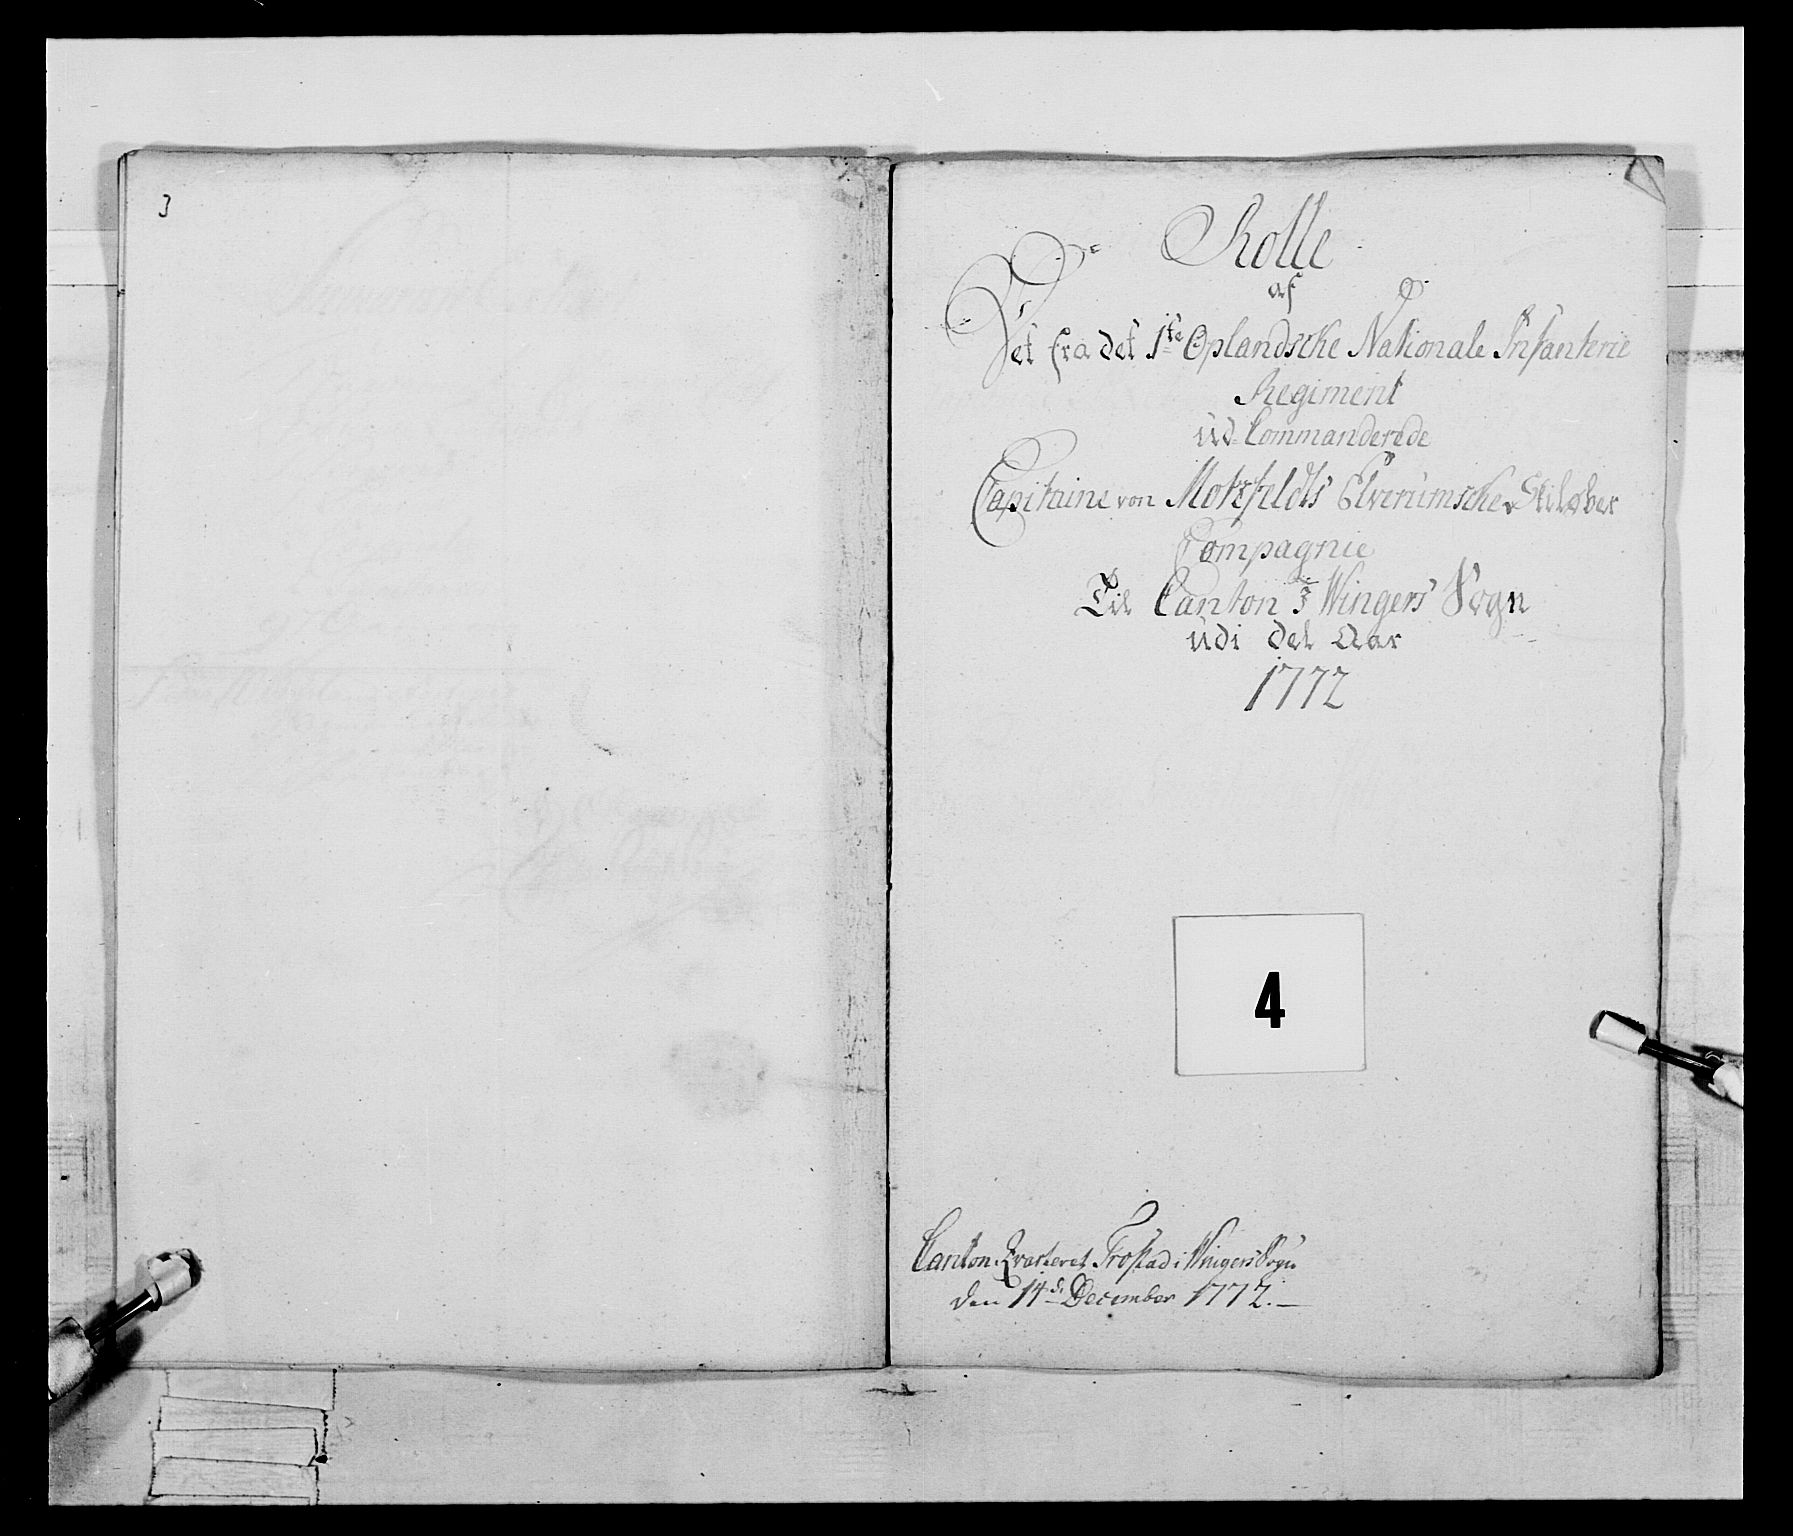 3
Rolle
af
Det fra det 1ste Oplandsche Nationale Infanterie
Regiment
ud-Commanderede
Capitaine von Motzfeldts Elverumsche Skiløber
Compagnie
Til Canton 3 Wingers Sogn
udi det Aar
1772
4
Canton Qvarteret Trostad i Wingers Sogn
den 14de December 1772.